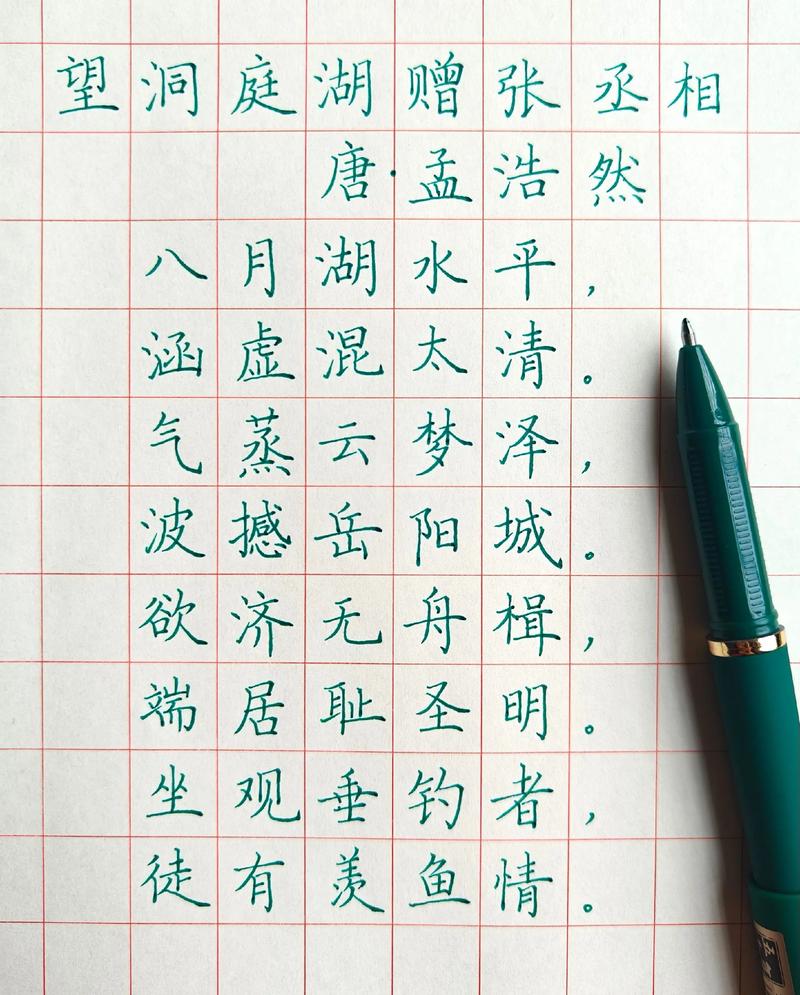 望洞庭湖赠张丞相
唐·孟浩然
八月湖水平，
涵虚混太清。
气蒸云梦泽，
波撼岳阳城。
欲济无舟楫，
端居耻圣明。
坐观垂钓者，
徒有羡鱼情。